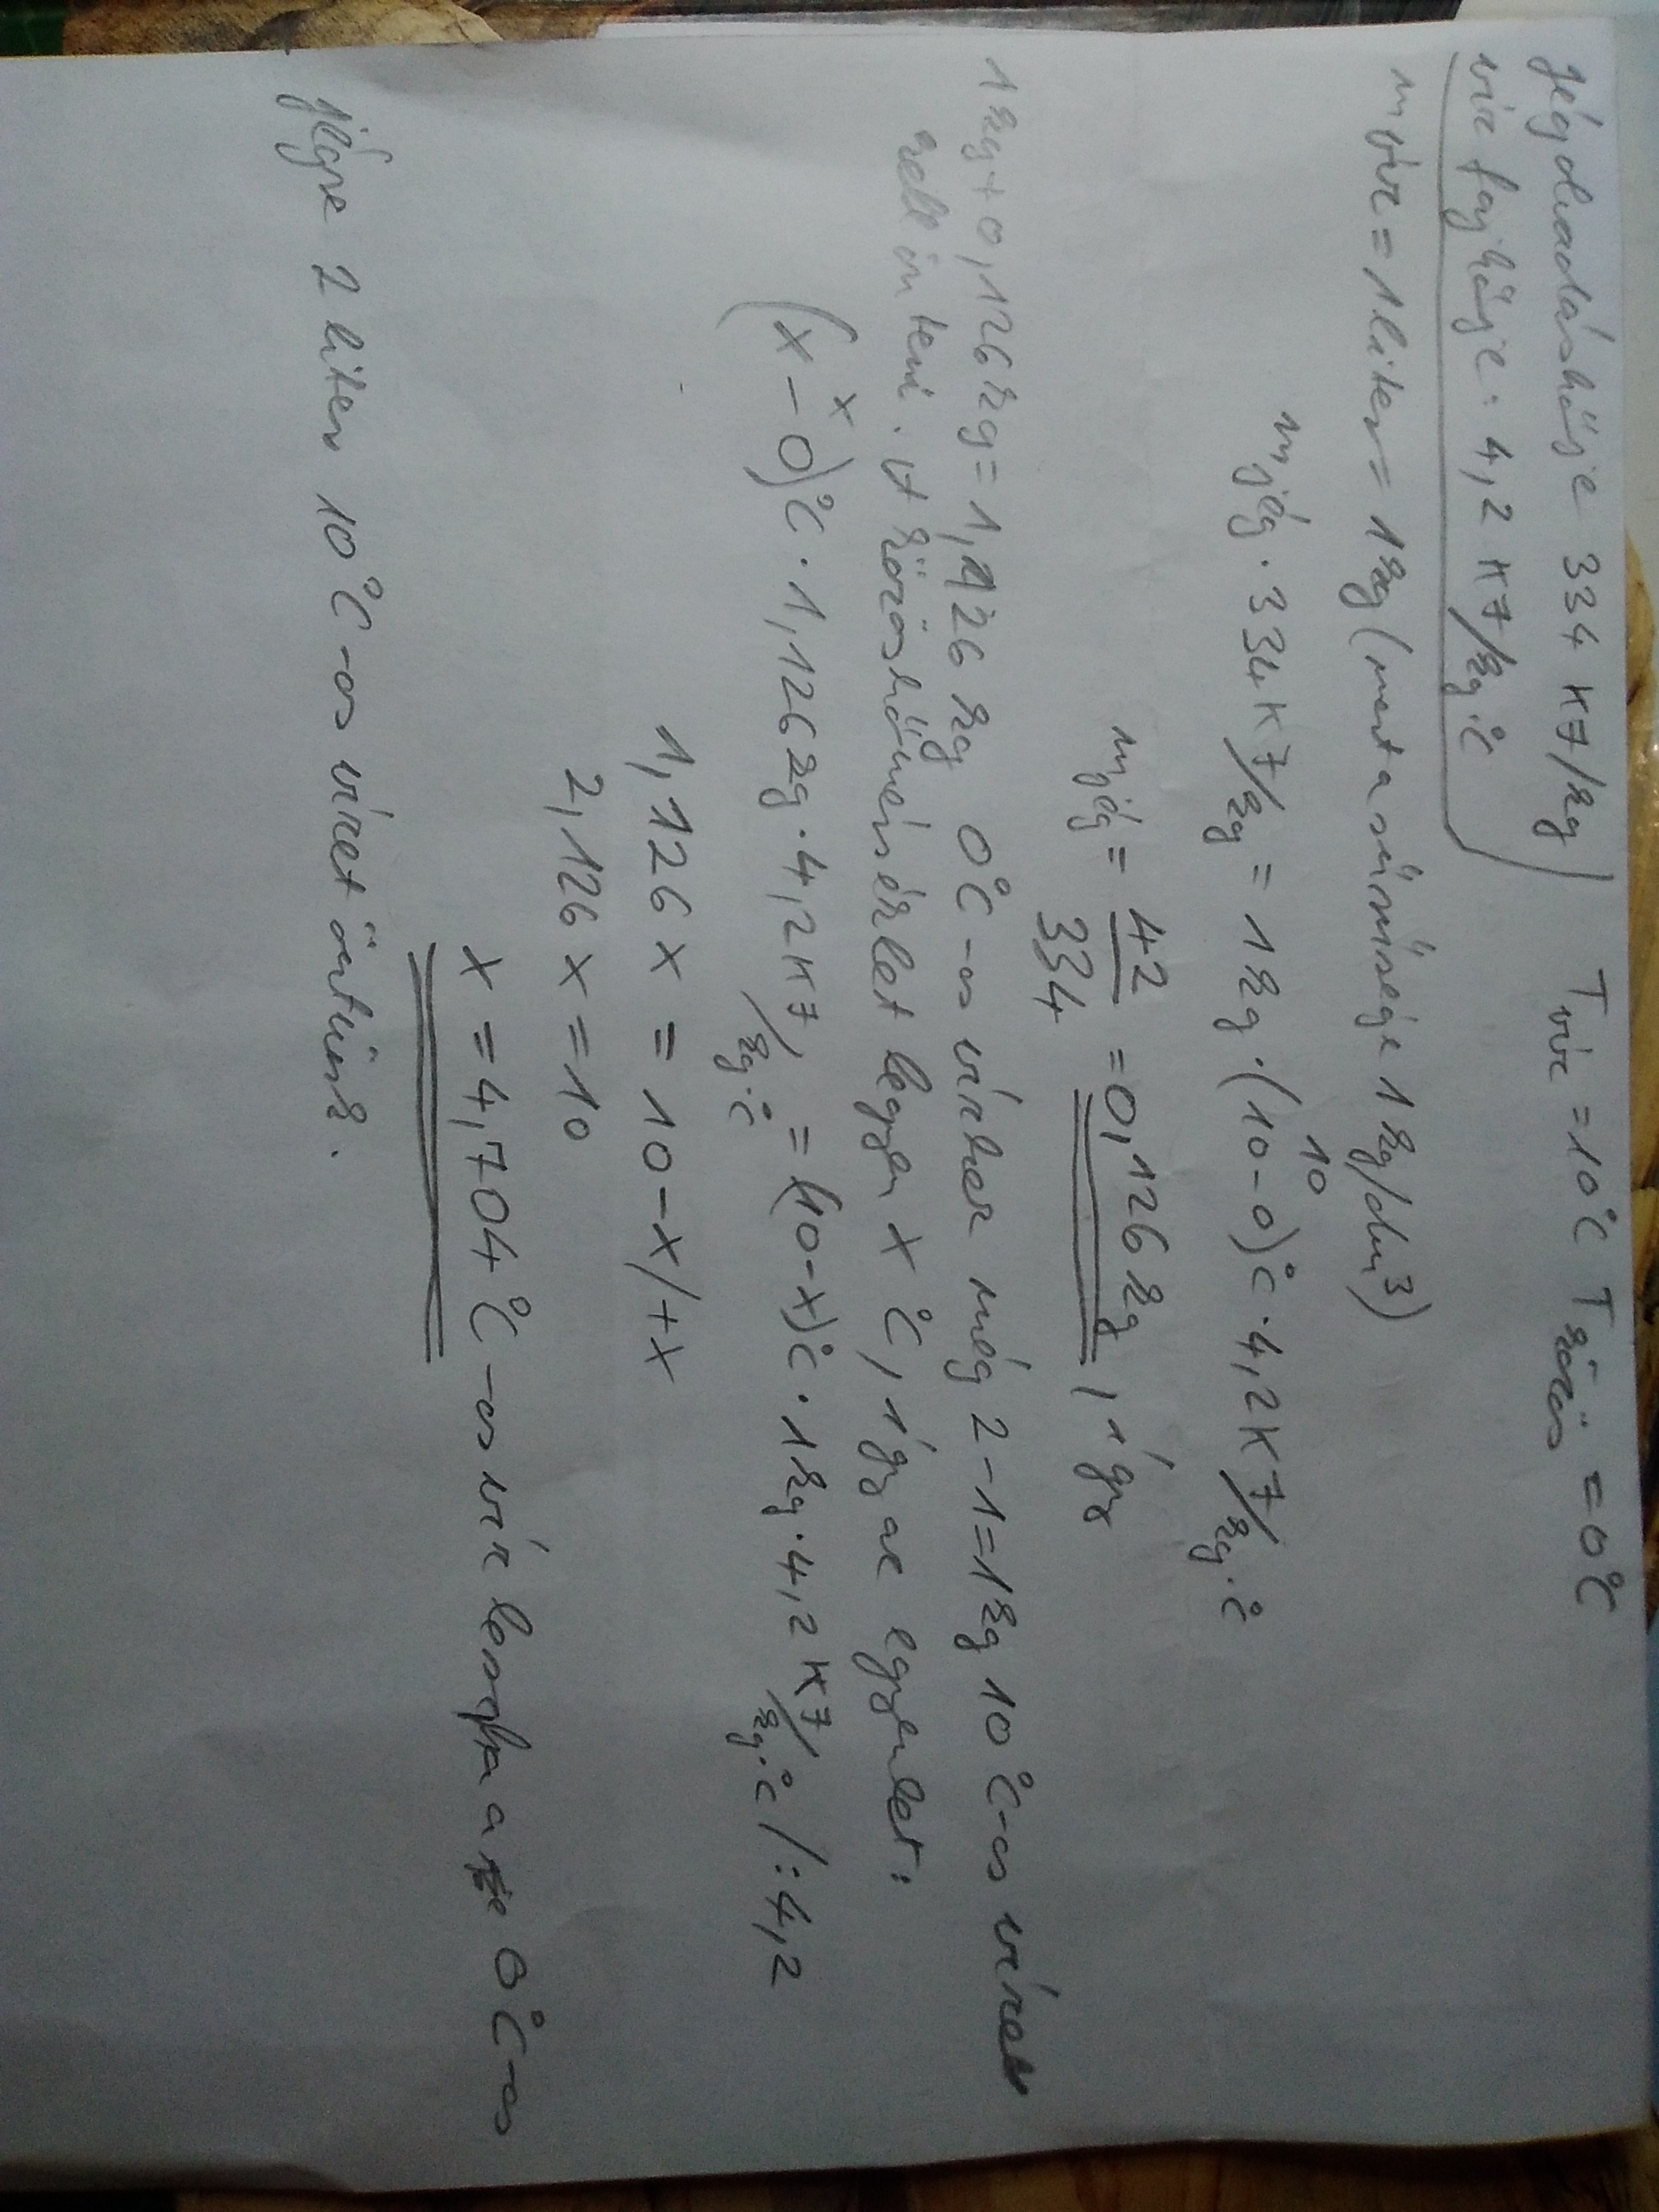 jég olvadáshője 334 KJ/kg T víz = 10°C T közös = 0°C
víz fajhője: 4,2 KJ/kg·°C
m víz = 1 liter = 1kg (mert a sűrűsége 1 kg/dm³)
m jég · 334 KJ/kg = 1 kg · (10-0)°C · 4,2 KJ/kg·°C
10
m jég = 42/334 = 0,126 kg, így
1kg + 0,126kg = 1,126 kg 0°C-os vízhez még 2-1=1kg 10°C-os vizet
kell önteni. A közös hőmérséklet legyen x °C, így az egyenlet:
x
(x-0)°C · 1,126kg · 4,2 KJ/kg·°C = (10-x)°C · 1kg · 4,2 KJ/kg·°C /:4,2
1,126 x = 10-x /+x
2,126 x = 10
x = 4,704°C-os víz lesz, ha a 0°C-os
jégre 2 liter 10°C-os vizet öntünk.